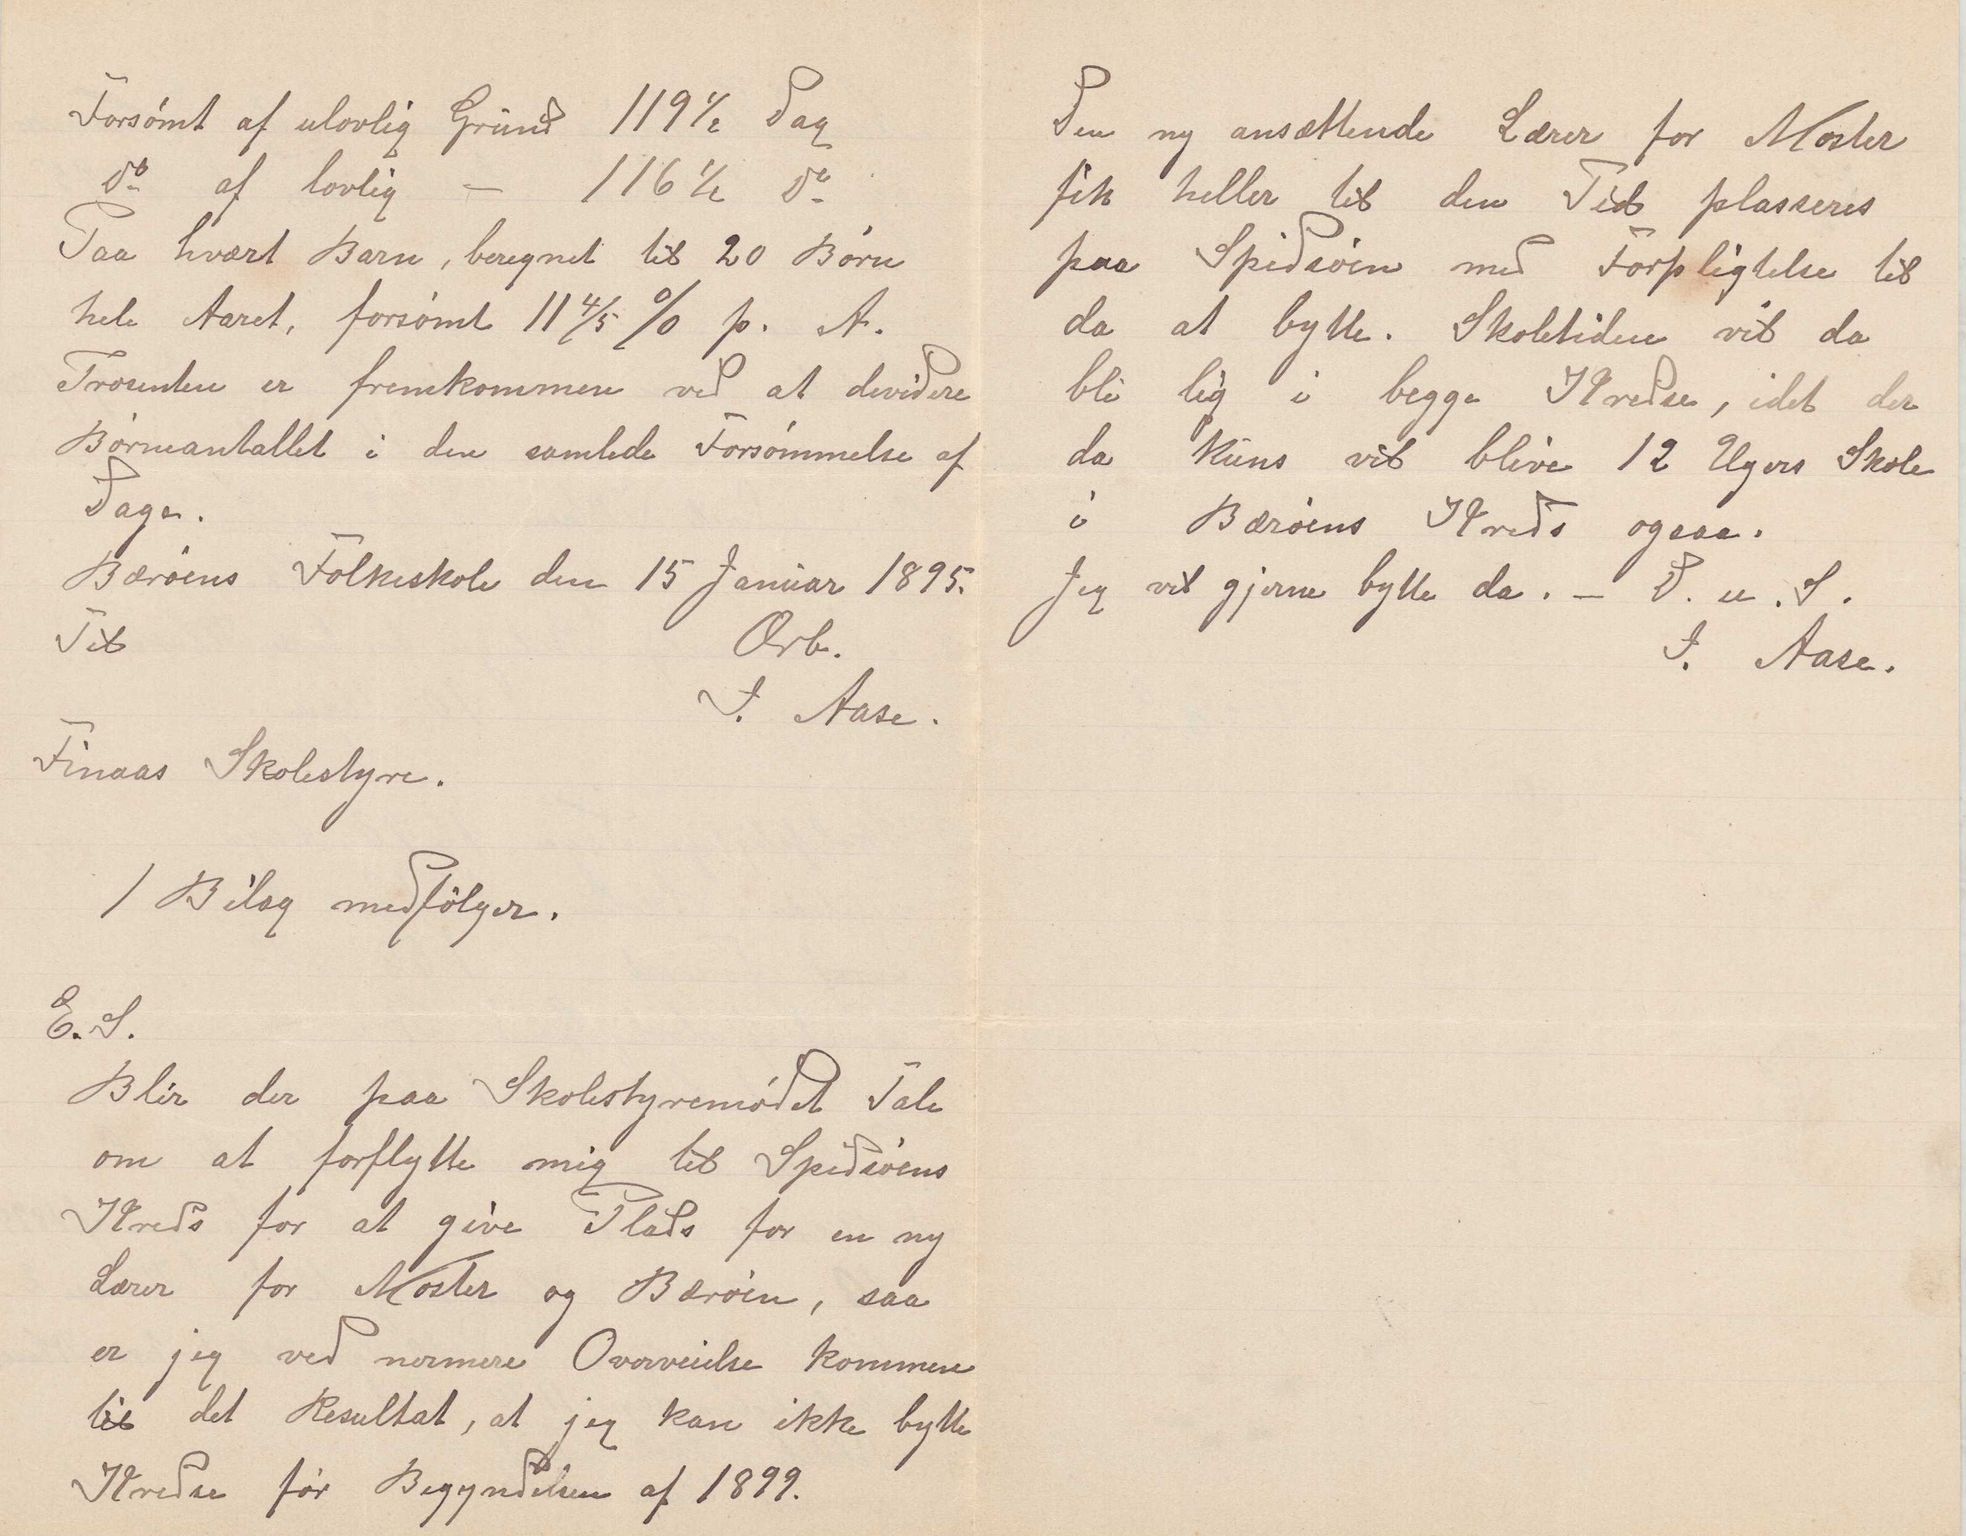 Forsømt af ulovlig Grund 119 1/2 Dag
do af lovlig — 116 1/2 do
Paa hvært Barn, beregnet til 20 Børn
hele Aaret, forsømt 11 4/5 % p. A.
Prosenten er fremkommen ved at devidere
Børneantallet i den samlede Forsømmelse af
Dage.
Bærøens Folkeskole den 15 Januar 1895.
Til
Ærb.
I. Aase.
Finaas Skolestyre.
1 Bilag medfølger.
E. S.
Blir der paa Skolestyremødet Tale
om at forflytte mig til Spidsøens
Kreds for at give Plads for en ny
Lærer for Moster og Bærøen, saa
er jeg ved nærmere Overveielse kommen
til det Resultat, at jeg kan ikke bytte
Kredse før Begyndelsen af 1899.
Den ny ansættende Lærer for Moster
fik heller til den Tid plasseres
paa Spidsøen med Forpligtelse til
da at bytte. Skoletiden vil da
bli lig i begge Kredse, idet der
da kuns vil blive 12 Ugers Skole
i Bærøens Kreds ogsaa.
Jeg vil gjerne bytte da. — D. u. S.
I. Aase.